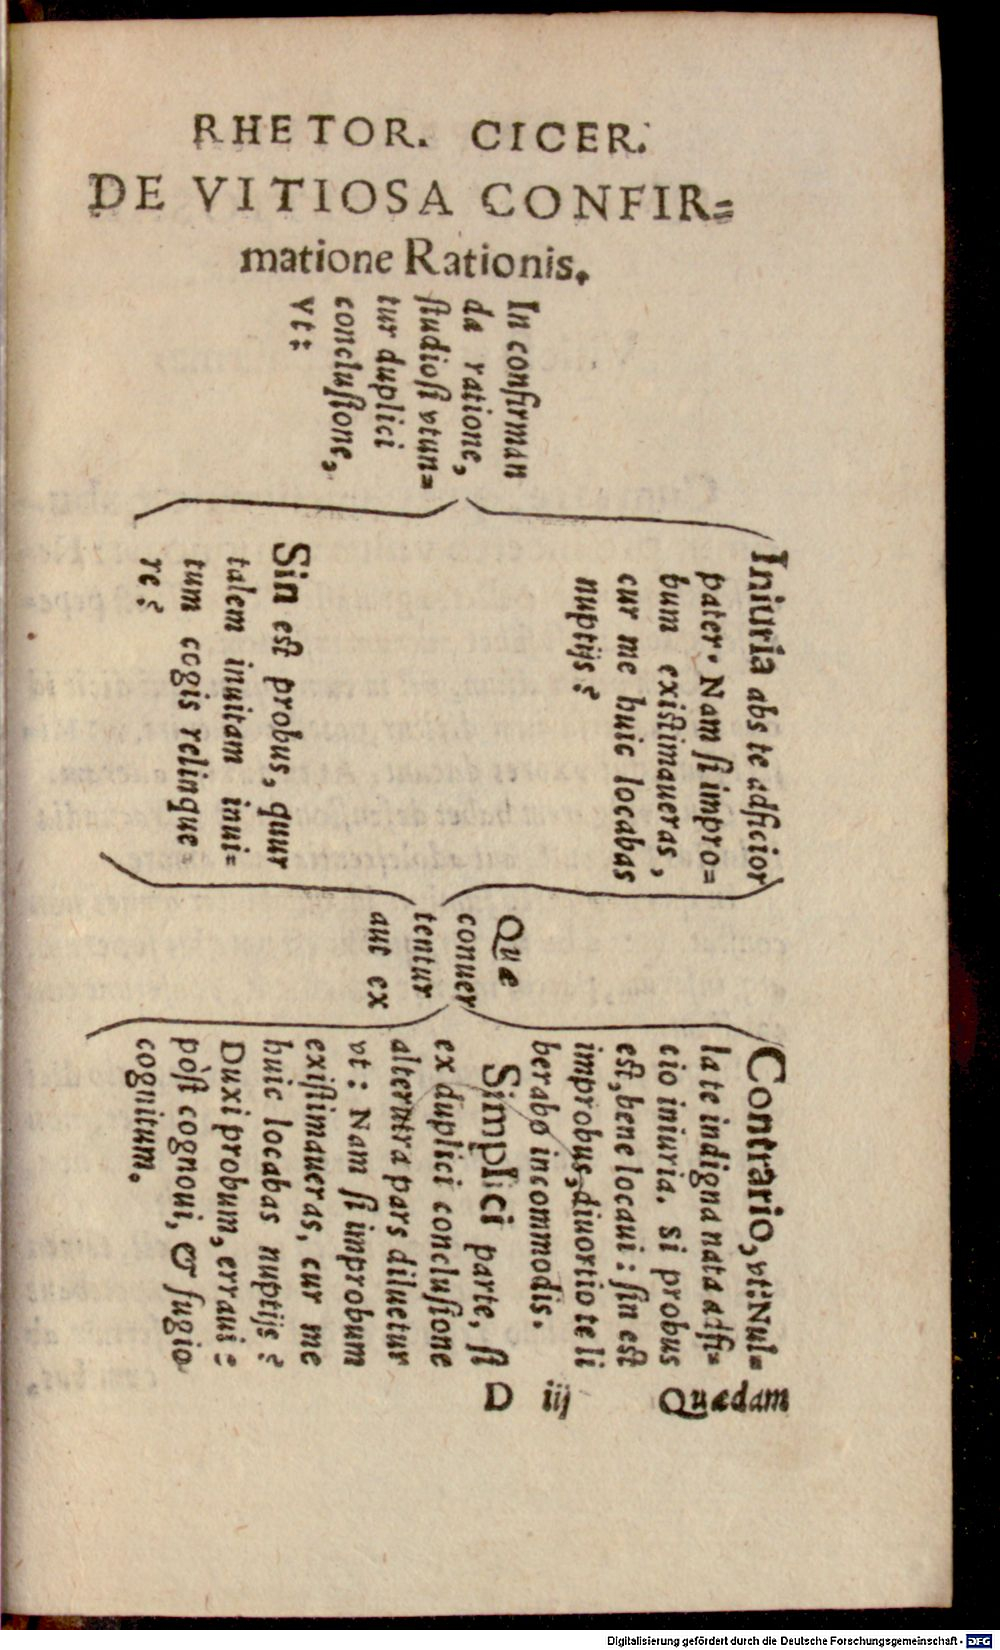 RHETOR. CICER.
DE VITIOSA CONFIR=
matione Rationis.
In confirman
da ratione,
ſtudioſi vtun=
tur duplici
concluſione,
vt:
Iniuria abs te adficior
pater. Nam ſi impro=
bum exiſtimaueras,
cur me huic locabas
nuptijs?
Sin eſt probus, quur
talem inuitam inui=
tum cogis relinque
re?
Quæ
conuer
tentur
aut ex
Contrario, vt: Nul=
la te indigna nata adfi=
cio iniuria. Si probus
eſt, bene locaui: ſin eſt
improbus, diuortio te li
berabo incommodis.
Simplici parte, ſi
ex duplici concluſione
alterutra pars diluetur
vt: Nam ſi improbum
exiſtimaueras, cur me
huic locabas nuptijs?
Duxi probum, erraui:
pòſt cognoui, & fugio
cognitum.
D iij Quædam
Digitalisierung gefördert durch die Deutsche Forschungsgemeinschaft - DFG